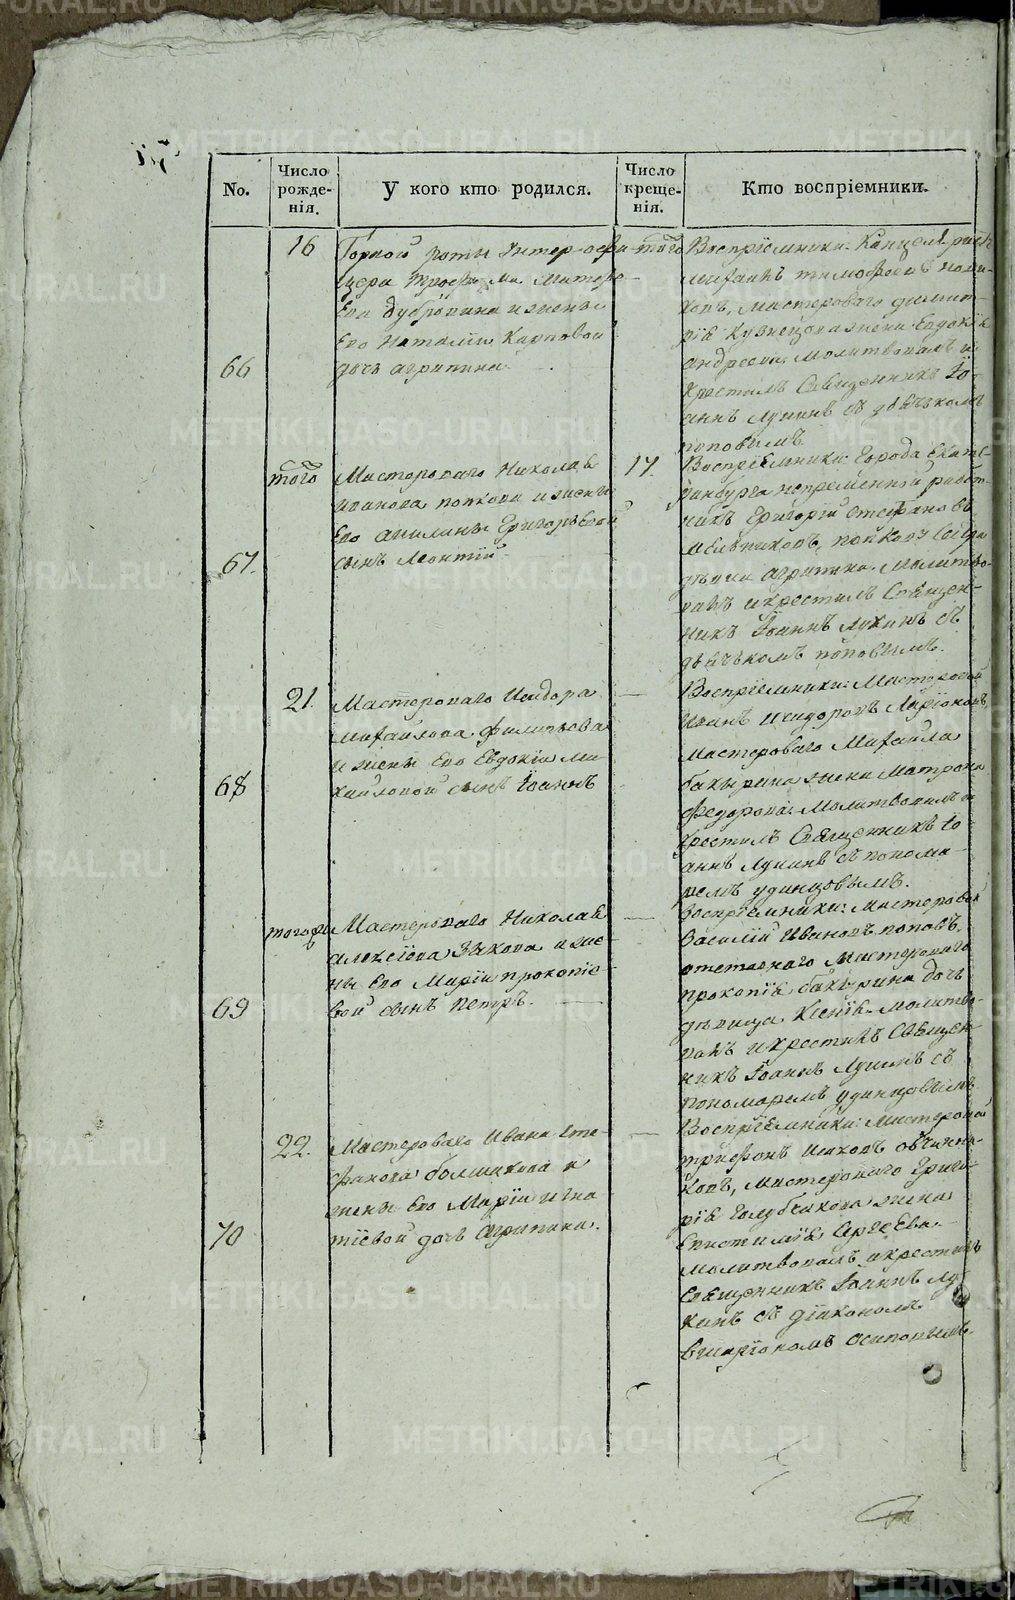 No.
Число рожде-нія.
У кого кто родился.
Число креще-нія.
Кто воспріемники.
16
66
Горной роты Унтер-офи-
цера Трофима
Дубровина и жены
его Наталіи Карповой
дочь агрипина
того
Воспріемники: Канцеляристъ
тимофеевъ
мастероваго димит-
рія Кузнецова жена Евдокія
андреева. Молитвовалъ и
крестилъ Священникъ Іо-
аннъ Лукинъ съ дьячкомъ
поповымъ
того
67.
Мастероваго Николая
иванова попкова и жены
его Григорьевой
сынъ Леонтій
17.
Воспріемники: Города Екате-
ринбурга непременной работ-
никъ Григорій Стефановъ
мельниковъ,
девица агрипина. Молитво-
валъ и крестилъ Священ-
никъ Іоаннъ Лукинъ съ
дьячкомъ поповымъ.
21.
68
Мастероваго Исидора
михайлова филипьева
и жены его Евдокіи ми-
хайловой сынъ Іоаннъ
Воспріемники: Мастеровой
Иванъ Исидоровъ Ларіоновъ,
мастероваго Михайла
бахирина жена Матрона
Федорова. Молитвовалъ и
крестилъ Священникъ Іо-
аннъ Лукинъ съ понома-
ремъ удинцовымъ.
тогожъ
69
Мастероваго Николая
алексіева Зыкова и же-
ны его Маріи прокопіе-
вой сынъ Петръ.
Воспріемники: Мастеровой
Василій Ивановъ поповъ,
отставнаго Мастероваго
прокопія бахирина дочь
девица Ксенія. Молитво-
валъ и крестилъ Священ-
никъ Іоаннъ Лукинъ съ
пономаремъ удинцовымъ
22.
70
Мастероваго Ивана Сте-
фанова болшакова и
жены его Маріи игна
тіевой дочь Агрипина.
Воспріемники: Мастеровой
трифонъ Исаковъ овчинни-
ковъ, Мастероваго Григо-
рія Голубчикова жена
Епистимія Сергеева.
Молитвовалъ и крестилъ
Священникъ Іоаннъ Лу-
кинъ съ діакономъ
Иларіономъ Осиповымъ.
METRIKI.GASO-URAL.RU